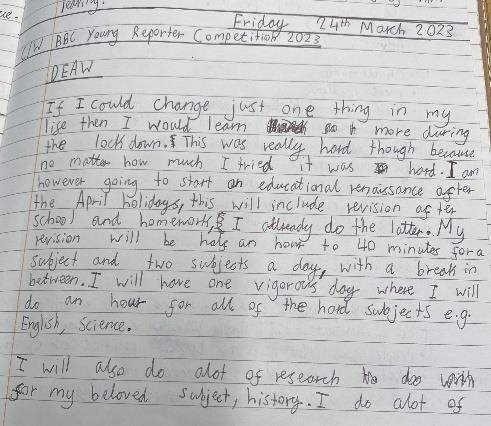 Friday 24th March 2023
C/W BBC Young Reporter Competition 2023
DEAW
If I could change just one thing in my
life then I would learn more during
the lockdown. This was really hard though because
no matter how much I tried it was hard. I am
however going to start an educational renaissance after
the April holidays, this will include revision after
school and homework, I already do the latter. My
revision will be half an hour to 40 minutes for a
subject and two subjects a day, with a break in
between. I will have one vigorous day where I will
do an hour for all of the hard subjects e.g.
English, Science.
I will also do alot of research
for my beloved subject, history. I do alot of